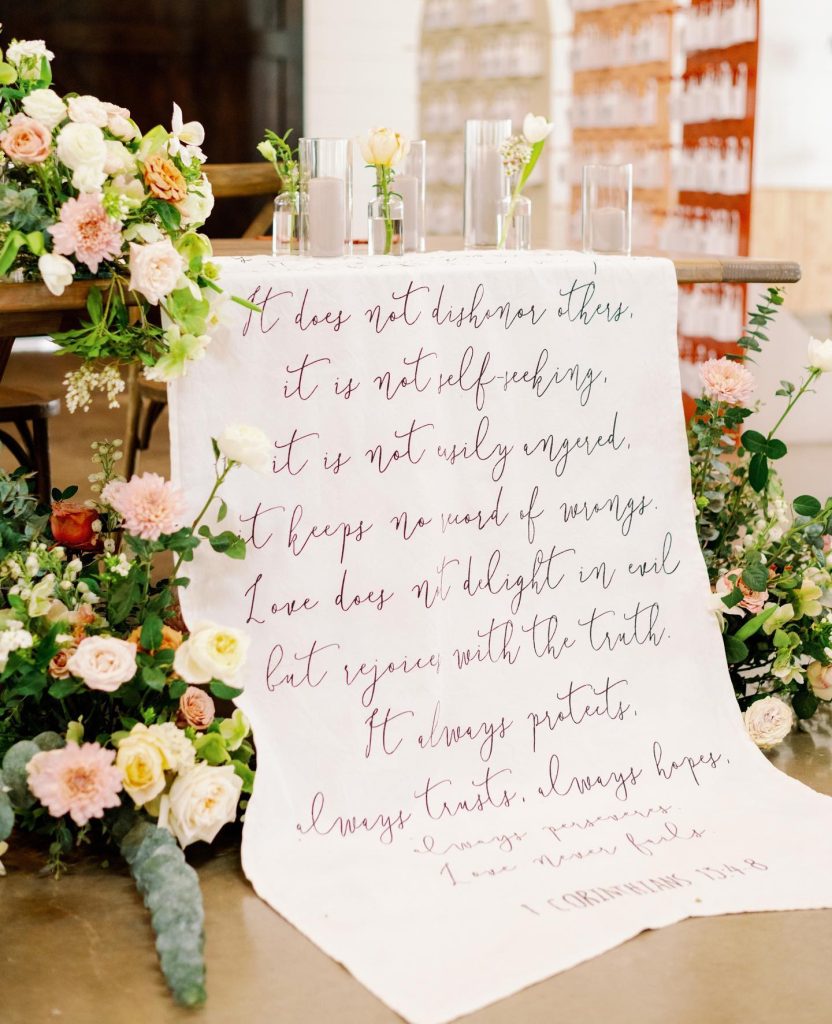 It does not dishonor others,
it is not self-seeking,
it is not easily angered,
it keeps no record of wrongs.
Love does not delight in evil
but rejoice with the truth.
It always protects,
always trusts, always hopes,
always perseveres.
Love never fails.
1 CORINTHIANS 13:4-8